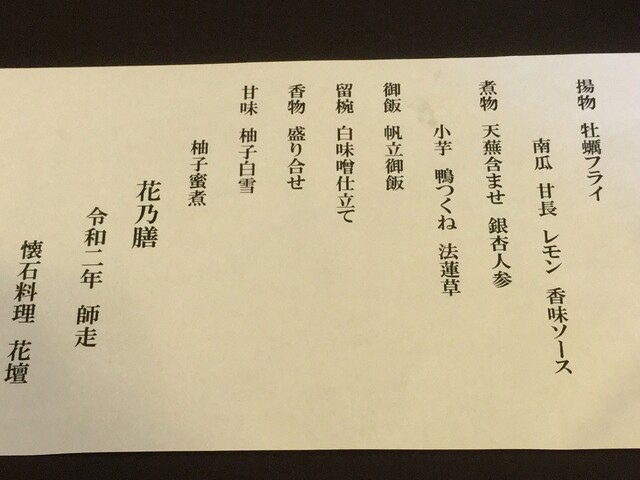 揚物 牡蠣フライ
南瓜 甘長 レモン 香味ソース
煮物 天蕪含ませ 銀杏人参
小芋 鴨つくね 法蓮草
御飯 帆立御飯
留椀 白味噌仕立て
香物 盛り合せ
甘味 柚子白雪
柚子蜜煮
花乃膳
令和二年 師走
懐石料理 花壇